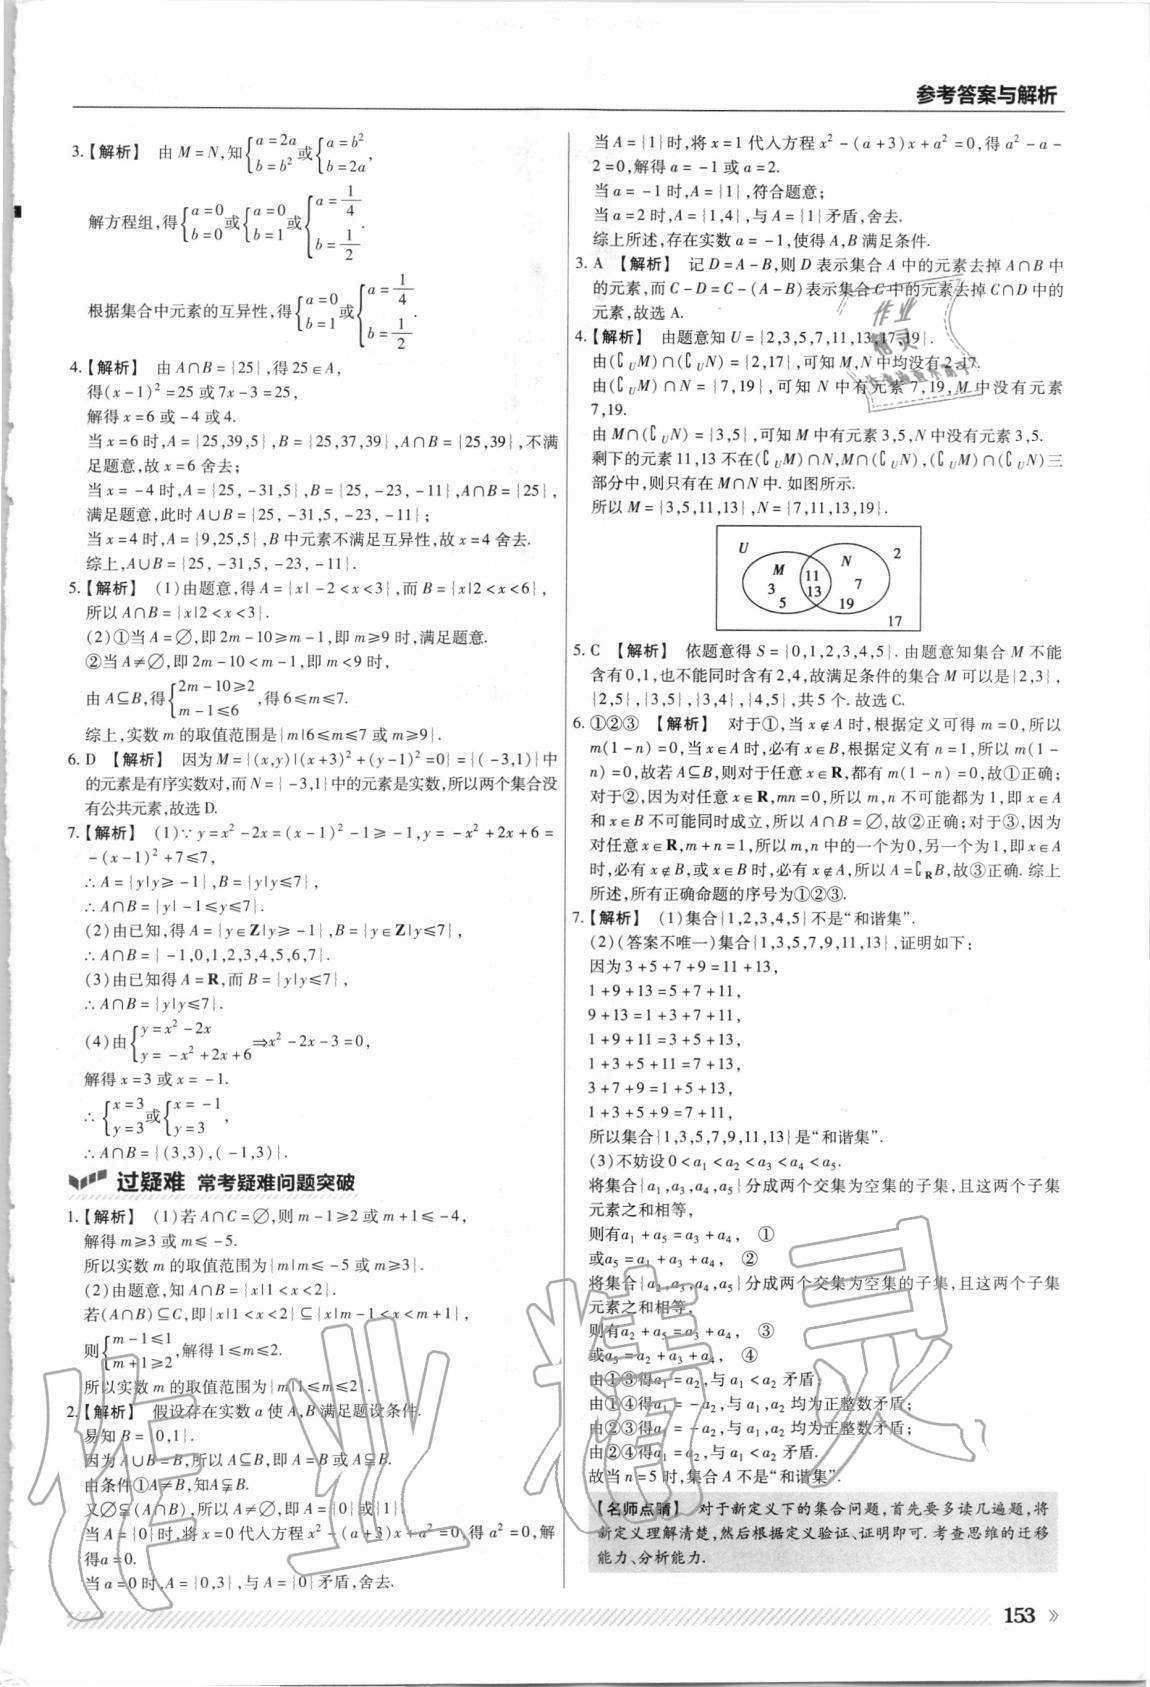 参考答案与解析
3.【解析】 由M=N,知{a=2a b=b²或{a=b² b=2a,
解方程组,得{a=0 b=0或{a=0 b=1或{a=1/4 b=1/2.
根据集合中元素的互异性,得{a=0 b=1或{a=1/4 b=1/2.
4.【解析】 由A∩B={25},得25∈A,
得(x-1)²=25或7x-3=25,
解得x=6或-4或4.
当x=6时,A={25,39,5},B={25,37,39},A∩B={25,39},不满
足题意,故x=6舍去;
当x=-4时,A={25,-31,5},B={25,-23,-11},A∩B={25},
满足题意,此时A∪B={25,-31,5,-23,-11};
当x=4时,A={9,25,5},B中元素不满足互异性,故x=4舍去.
综上,A∪B={25,-31,5,-23,-11}.
5.【解析】 (1)由题意,得A={x|-2<x<3},而B={x|2<x<6},
所以A∩B={x|2<x<3}.
(2)①当A=∅,即2m-10≥m-1,即m≥9时,满足题意.
②当A≠∅,即2m-10<m-1,即m<9时,
由A⊆B,得{2m-10≥2 m-1≤6,得6≤m≤7.
综上,实数m的取值范围是{m|6≤m≤7或m≥9}.
6. D 【解析】 因为M={(x,y)|(x+3)²+(y-1)²=0}={(-3,1)}中
的元素是有序实数对,而N={-3,1}中的元素是实数,所以两个集合没
有公共元素,故选D.
7.【解析】 (1)∵y=x²-2x=(x-1)²-1≥-1,y=-x²+2x+6=
-(x-1)²+7≤7,
∴A={y|y≥-1},B={y|y≤7},
∴A∩B={y|-1≤y≤7}.
(2)由已知,得A={y∈Z|y≥-1},B={y∈Z|y≤7},
∴A∩B={-1,0,1,2,3,4,5,6,7}.
(3)由已知得A=R,而B={y|y≤7},
∴A∩B={y|y≤7}.
(4)由{y=x²-2x y=-x²+2x+6⇒x²-2x-3=0,
解得x=3或x=-1.
∴{x=3 y=3或{x=-1 y=3,
∴A∩B={(3,3),(-1,3)}.
过疑难 常考疑难问题突破
1.【解析】 (1)若A∩C=∅,则m-1≥2或m+1≤-4,
解得m≥3或m≤-5.
所以实数m的取值范围为{m|m≤-5或m≥3}.
(2)由题意,知A∩B={x|1<x<2}.
若(A∩B)⊆C,即{x|1<x<2}⊆{x|m-1<x<m+1},
则{m-1≤1 m+1≥2,解得1≤m≤2.
所以实数m的取值范围为{m|1≤m≤2}.
2.【解析】 假设存在实数a使A,B满足题设条件.
易知B={0,1}.
因为A∪B=B,所以A⊆B,即A=B或A⫋B.
由条件①A≠B,知A⫋B.
又∅⫋(A∩B),所以A≠∅,即A={0}或{1}.
当A={0}时,将x=0代入方程x²-(a+3)x+a²=0,得a²=0,解
得a=0.
当a=0时,A={0,3},与A={0}矛盾,舍去.
当A={1}时,将x=1代入方程x²-(a+3)x+a²=0,得a²-a-
2=0,解得a=-1或a=2.
当a=-1时,A={1},符合题意;
当a=2时,A={1,4},与A={1}矛盾,舍去.
综上所述,存在实数a=-1,使得A,B满足条件.
3. A 【解析】 记D=A-B,则D表示集合A中的元素去掉A∩B中
的元素,而C-D=C-(A-B)表示集合C中的元素去掉C∩D中的
元素,故选A.
4.【解析】 由题意知U={2,3,5,7,11,13,17,19}.
由(∁UM)∩(∁UN)={2,17},可知M,N中均没有2,17.
由(∁UM)∩N={7,19},可知N中有元素7,19,M中没有元素
7,19.
由M∩(∁UN)={3,5},可知M中有元素3,5,N中没有元素3,5.
剩下的元素11,13不在(∁UM)∩N,M∩(∁UN),(∁UM)∩(∁UN)三
部分中,则只有在M∩N中.如图所示.
所以M={3,5,11,13},N={7,11,13,19}.
U
M
N
2
3
11
7
13
5
19
17
5. C 【解析】 依题意得S={0,1,2,3,4,5}.由题意知集合M不能
含有0,1,也不能同时含有2,4,故满足条件的集合M可以是{2,3},
{2,5},{3,5},{3,4},{4,5},共5个.故选C.
6. ①②③ 【解析】 对于①,当x∉A时,根据定义可得m=0,所以
m(1-n)=0,当x∈A时,必有x∈B,根据定义有n=1,所以m(1-
n)=0,故若A⊆B,则对于任意x∈R,都有m(1-n)=0,故①正确;
对于②,因为对任意x∈R,mn=0,所以m,n不可能都为1,即x∈A
和x∈B不可能同时成立,所以A∩B=∅,故②正确;对于③,因为
对任意x∈R,m+n=1,所以m,n中的一个为0,另一个为1,即x∈A
时,必有x∉B,或x∈B时,必有x∉A,所以A=∁RB,故③正确.综上
所述,所有正确命题的序号为①②③.
7.【解析】 (1)集合{1,2,3,4,5}不是“和谐集”.
(2)(答案不唯一)集合{1,3,5,7,9,11,13},证明如下:
因为3+5+7+9=11+13,
1+9+13=5+7+11,
9+13=1+3+7+11,
1+9+11=3+5+13,
1+3+5+11=7+13,
3+7+9=1+5+13,
1+3+5+9=7+11,
所以集合{1,3,5,7,9,11,13}是“和谐集”.
(3)不妨设0<a₁<a₂<a₃<a₄<a₅.
将集合{a₁,a₃,a₄,a₅}分成两个交集为空集的子集,且这两个子集
元素之和相等,
则有a₁+a₅=a₃+a₄, ①
或a₅=a₁+a₃+a₄, ②
将集合{a₂,a₃,a₄,a₅}分成两个交集为空集的子集,且这两个子集
元素之和相等,
则有a₂+a₅=a₃+a₄, ③
或a₅=a₂+a₃+a₄, ④
由①③得a₁=a₂,与a₁<a₂矛盾;
由①④得a₁=-a₂,与a₁,a₂均为正整数矛盾;
由②③得a₁=-a₂,与a₁,a₂均为正整数矛盾;
由②④得a₁=a₂,与a₁<a₂矛盾.
故当n=5时,集合A不是“和谐集”.
【名师点睛】 对于新定义下的集合问题,首先要多读几遍题,将
新定义理解清楚,然后根据定义验证、证明即可.考查思维的迁移
能力、分析能力.
153
作业精灵
作业
精灵